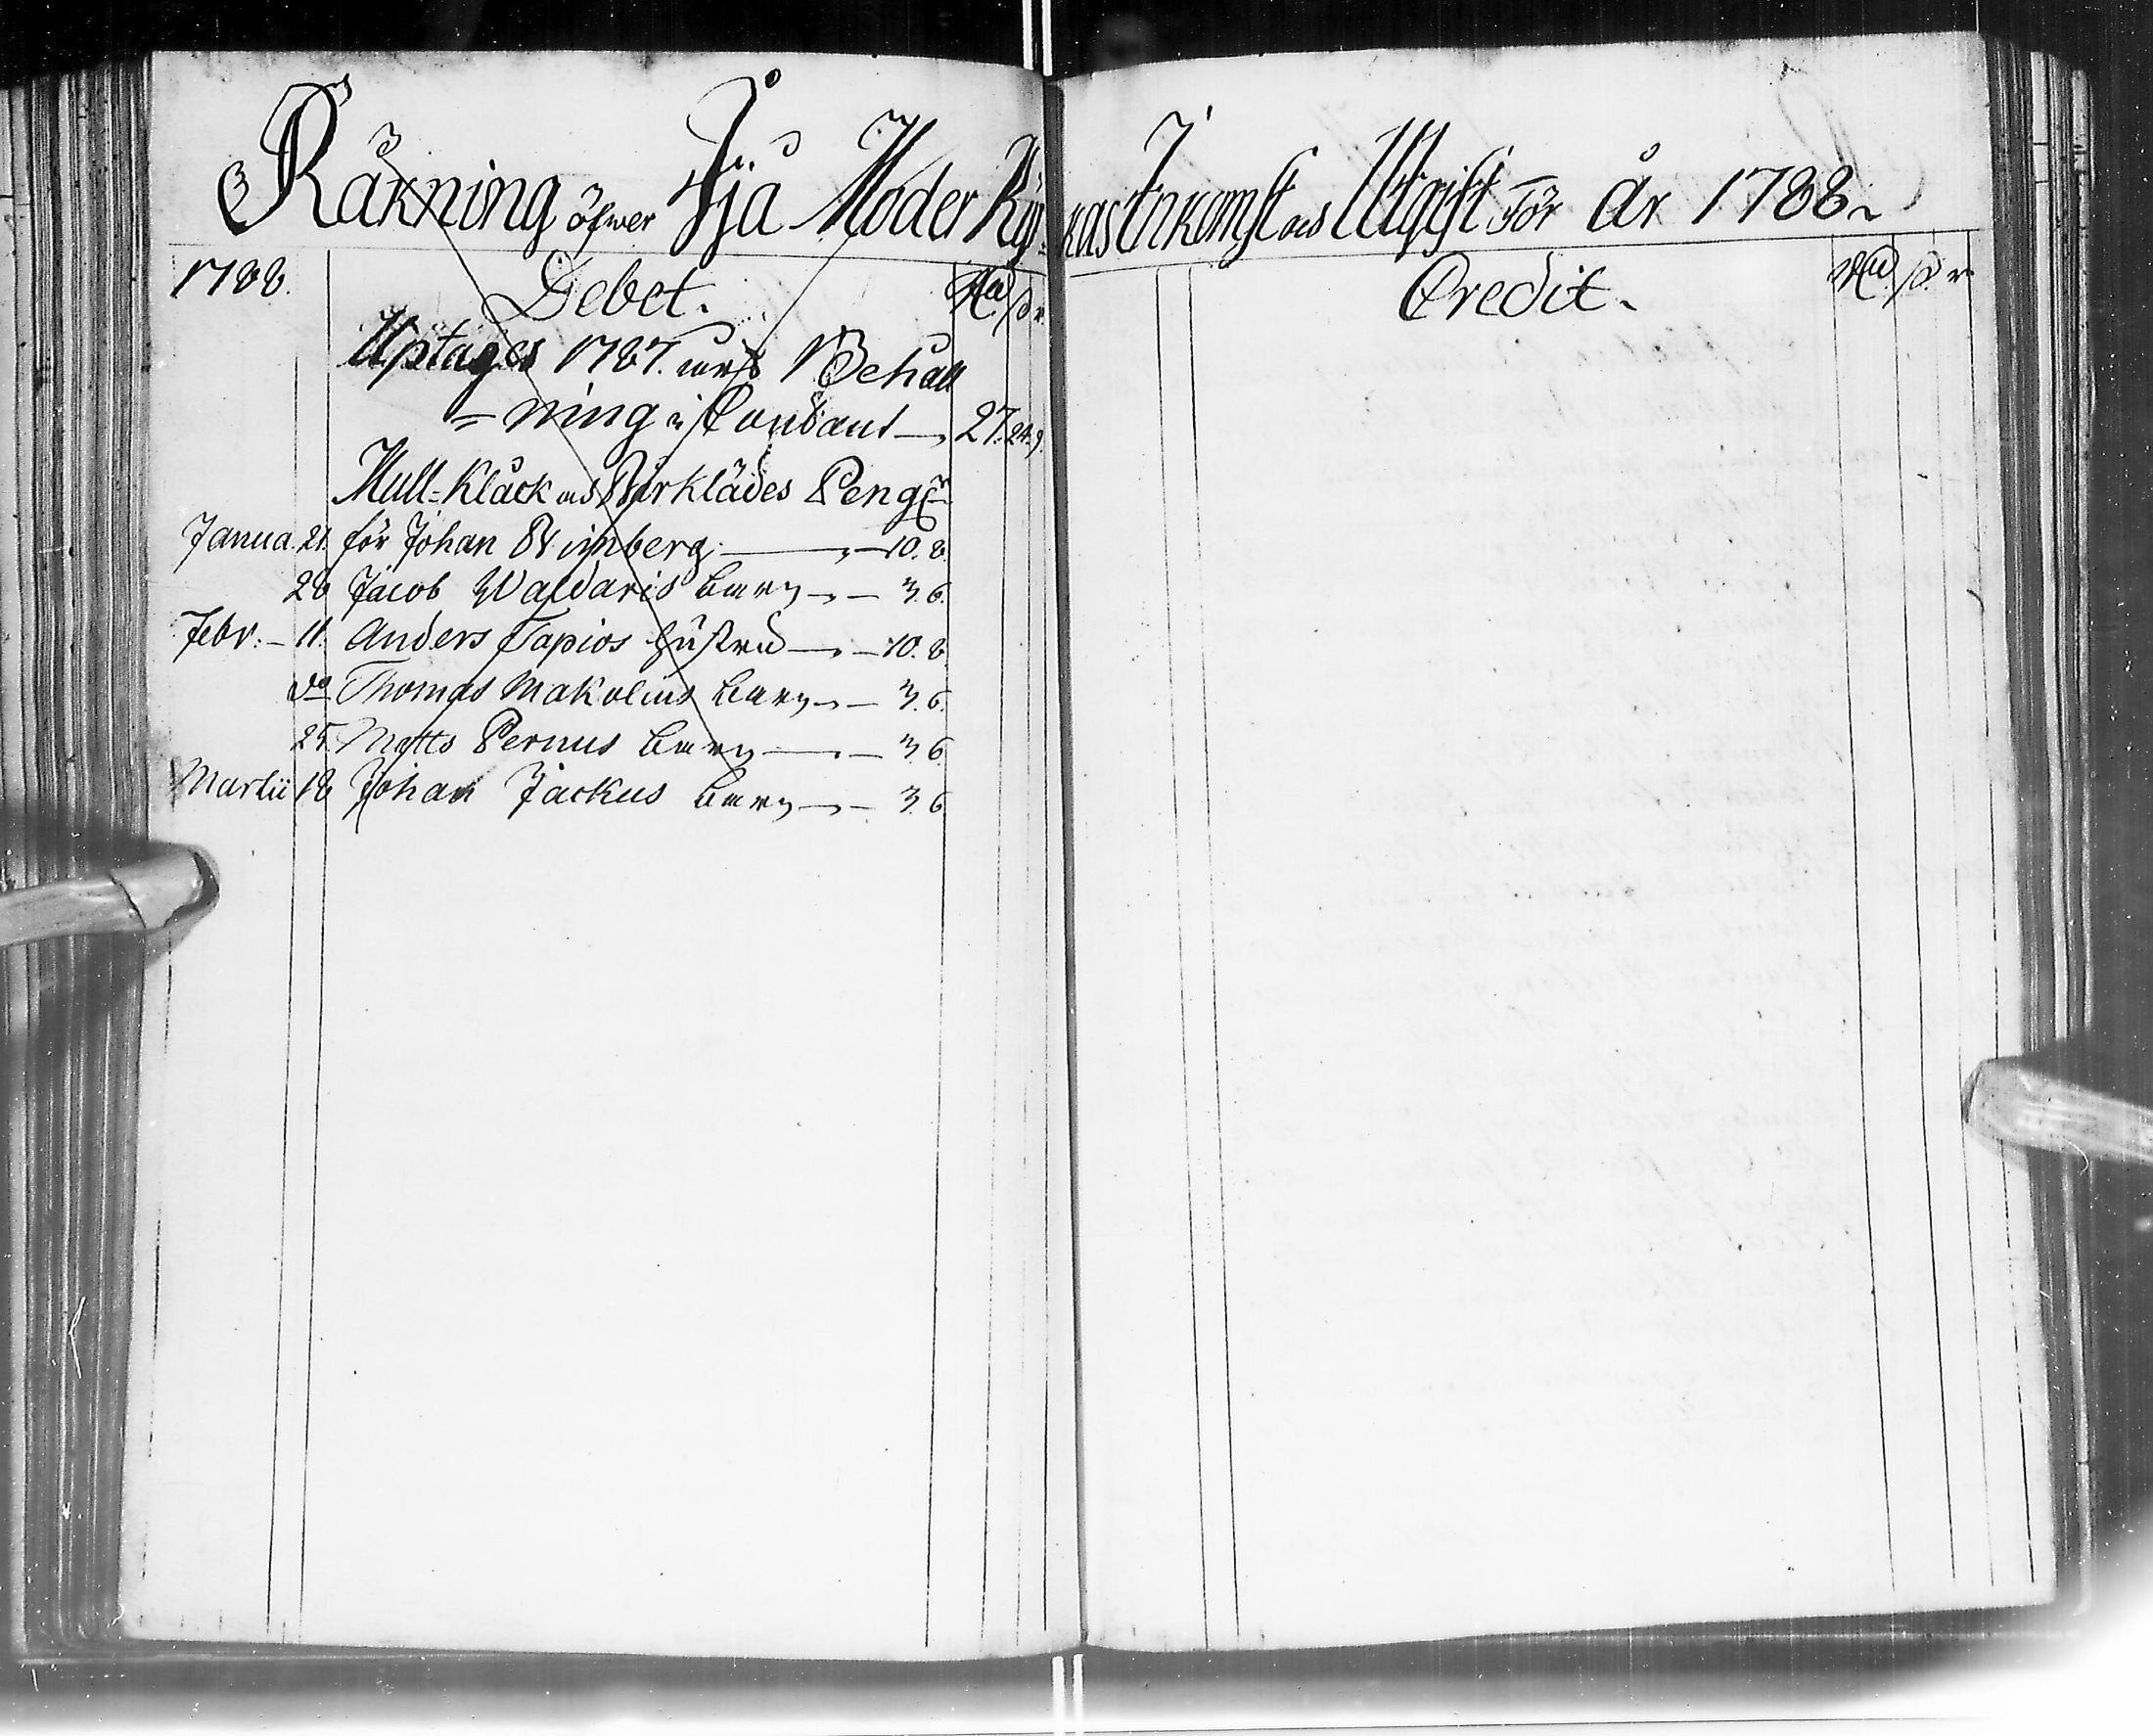 Räkning öfwer Ijå Moder Kyr=kas Inkomst och Utgift För år 1788
1788. Debet. Rd ß r
Uptages 1787. års Behåll
=ning i Contant 27. 24. 9.
Mull=Klåck och Bårklädes Peng:r
Janua. 21. för Johan Winberg 10. 8.
28 Jacob Waldaris barn 3. 6.
Febr: 11. Anders Tapios hustru 10. 8
do Thomas Makolins barn 3. 6.
25. Matts Pernus barn 3. 6.
Martii 18 Johan Jackus barn 3. 6
Credit. Rd ß r